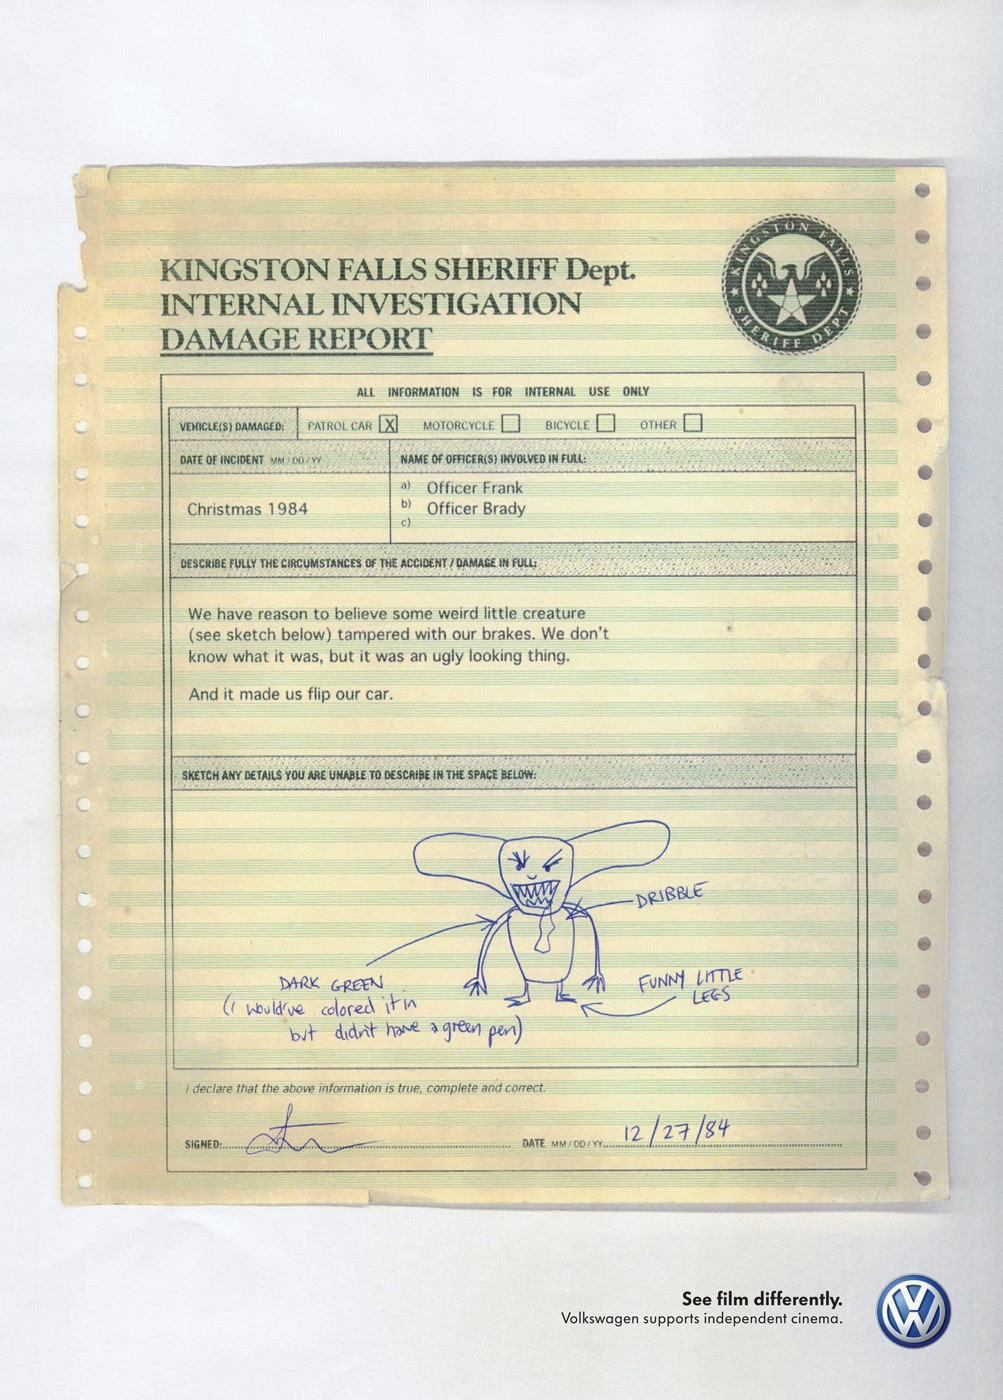 KINGSTON FALLS SHERIFF Dept.
INTERNAL INVESTIGATION
DAMAGE REPORT
KINGSTON FALLS
SHERIFF DEPT
ALL INFORMATION IS FOR INTERNAL USE ONLY
VEHICLE(S) DAMAGED: PATROL CAR X MOTORCYCLE BICYCLE OTHER
DATE OF INCIDENT MM / DD / YY NAME OF OFFICER(S) INVOLVED IN FULL:
a) Officer Frank
Christmas 1984 b) Officer Brady
c)
DESCRIBE FULLY THE CIRCUMSTANCES OF THE ACCIDENT / DAMAGE IN FULL:
We have reason to believe some weird little creature
(see sketch below) tampered with our brakes. We don't
know what it was, but it was an ugly looking thing.
And it made us flip our car.
SKETCH ANY DETAILS YOU ARE UNABLE TO DESCRIBE IN THE SPACE BELOW:
DRIBBLE
DARK GREEN
(I would've colored it in
but didn't have a green pen)
FUNNY LITTLE
LEGS
I declare that the above information is true, complete and correct.
SIGNED: DATE MM / DD / YY 12/27/84
See film differently.
Volkswagen supports independent cinema.
VW